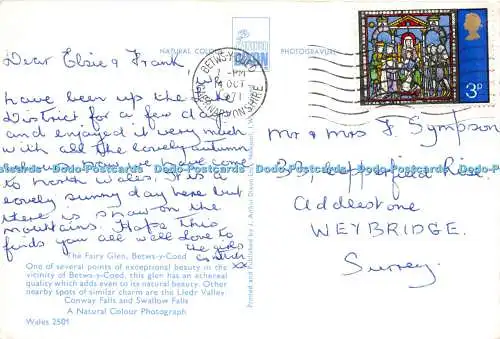 NATURAL COLOUR
PHOTOGRAVURE
DIXON
BETWS-Y-COED
PM
OCT
1971
CAERNARVONSHIRE
3P
Dear Elsie & Frank,
We
have been up the Lake
District for a few days
and enjoyed it very much
with all the lovely autumn
we have come
to north Wales. It is a
lovely sunny day here but
there is snow on the
mountains. Hope this
finds you all well. Love to
the girls
xx
Mr & Mrs F. Sympson
Addlestone
WEYBRIDGE.
Surrey.
The Fairy Glen, Betws-y-Coed
One of several points of exceptional beauty in the
vicinity of Betws-y-Coed, this glen has an ethereal
quality which adds even to its natural beauty. Other
nearby spots of similar charm are the Lledr Valley,
Conway Falls and Swallow Falls
A Natural Colour Photograph
Wales 2501
Printed and Published by J. Arthur Dixon
Dodo-Postcards Dodo-Postcards Dodo-Postcards Dodo-Postcards Dodo-Postcards